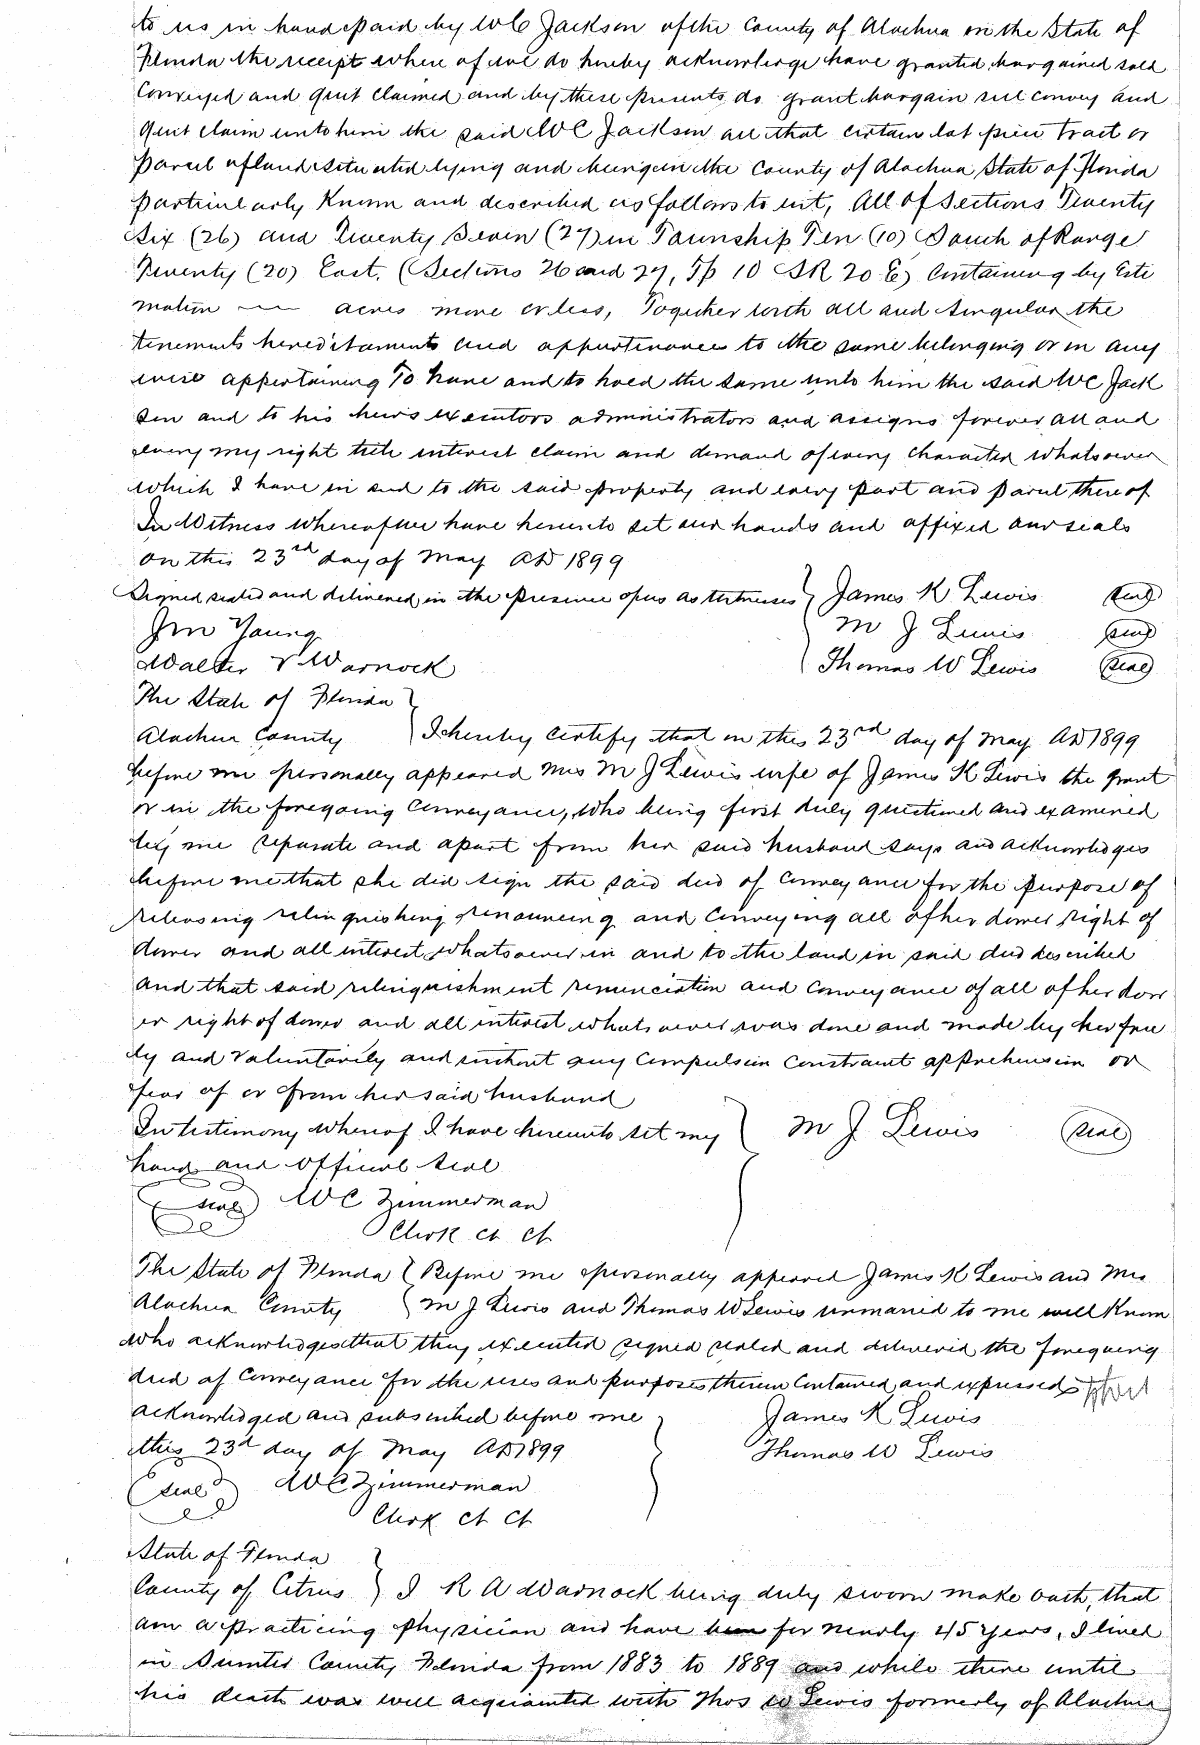 to us in hand paid by W C Jackson of the County of Alachua in the State of
Florida the receipt where of we do hereby acknowledge have granted bargained sold
Conveyed and quit claimed and by these presents do grant bargain sell convey and
quit claim unto him the said W C Jackson all that certain lot piece tract or
parcel of land situated lying and being in the County of Alachua State of Florida
particularly Known and described as follows to wit, All of Sections Twenty
Six (26) and Twenty Seven (27) in Township Ten (10) South of Range
Twenty (20) East. (Sections 26 and 27, Tp 10 S R 20 E) Containing by Esti
mation — acres more or less, Together with all and singular the
tenements hereditaments and appurtenances to the same belonging or in any
wise appertaining To have and to hold the same unto him the said W C Jack
son and to his heirs executors administrators and assigns forever all and
every my right title interest claim and demand of every character whatsoever
which I have in and to the said property and every part and parcel thereof
In Witness whereof we have hereunto set our hands and affixed our seals
on this 23rd day of May AD 1899
Signed sealed and delivered in the presence of us as witnesses } James K Lewis (seal)
Jm Young M J Lewis (seal)
Walter V Warnock Thomas W Lewis (seal)
The State of Florida }
Alachua County } I hereby certify that on this 23rd day of May AD 1899
before me personally appeared Mrs M J Lewis wife of James K Lewis the grant
or in the foregoing Conveyance, who being first duly questioned and examined
by me separate and apart from her said husband says and acknowledges
before me that she did sign the said deed of Conveyance for the purpose of
releasing relinquishing renouncing and Conveying all of her dower right of
dower and all interest whatsoever in and to the land in said deed described
and that said relinquishment renunciation and conveyance of all of her dow
er right of dower and all interest whatsoever was done and made by her free
ly and Voluntarily and without any Compulsion Constraint apprehension or
fear of or from her said husband
In testimony whereof I have hereunto set my } M J Lewis (seal)
hand and official seal
(seal) W C Zimmerman
Clerk Ct Ct
The State of Florida { Before me personally appeared James K Lewis and Mrs
Alachua County { M J Lewis and Thomas W Lewis unmaried to me well Known
who acknowledges that they executed signed sealed and delivered the foregoing
deed of Conveyance for the uses and purposes therein Contained and expressed
acknowledged and subscribed before me } James K Lewis
this 23d day of May AD 1899 } Thomas W Lewis
(seal) W C Zimmerman
Clerk Ct Ct
State of Florida }
County of Citrus } I R A Warnock being duly sworn make oath, that
am a practicing physician and have been for nearly 45 years, I lived
in Sumter County Florida from 1883 to 1889 and while there until
his death was well acquainted with Thos W Lewis formerly of Alachua